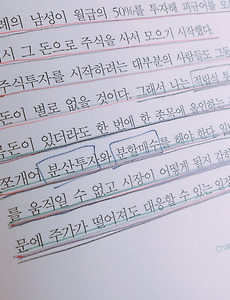 례의 남성이 월급의 50%를 투자해 피규어를 모
시 그 돈으로 주식을 사서 모으기 시작했다.
주식투자를 시작하려는 대부분의 사람들도 그동
돈이 별로 없을 것이다. 그래서 나는 적립식 투
목돈이 있더라도 한 번에 한 종목에 올인하는
쪼개어 분산투자와 분할매수를 해야 한다.
를 움직일 수 없고 시장이 어떻게 될지 감히
문에 주가가 떨어져도 대응할 수 있는 일정